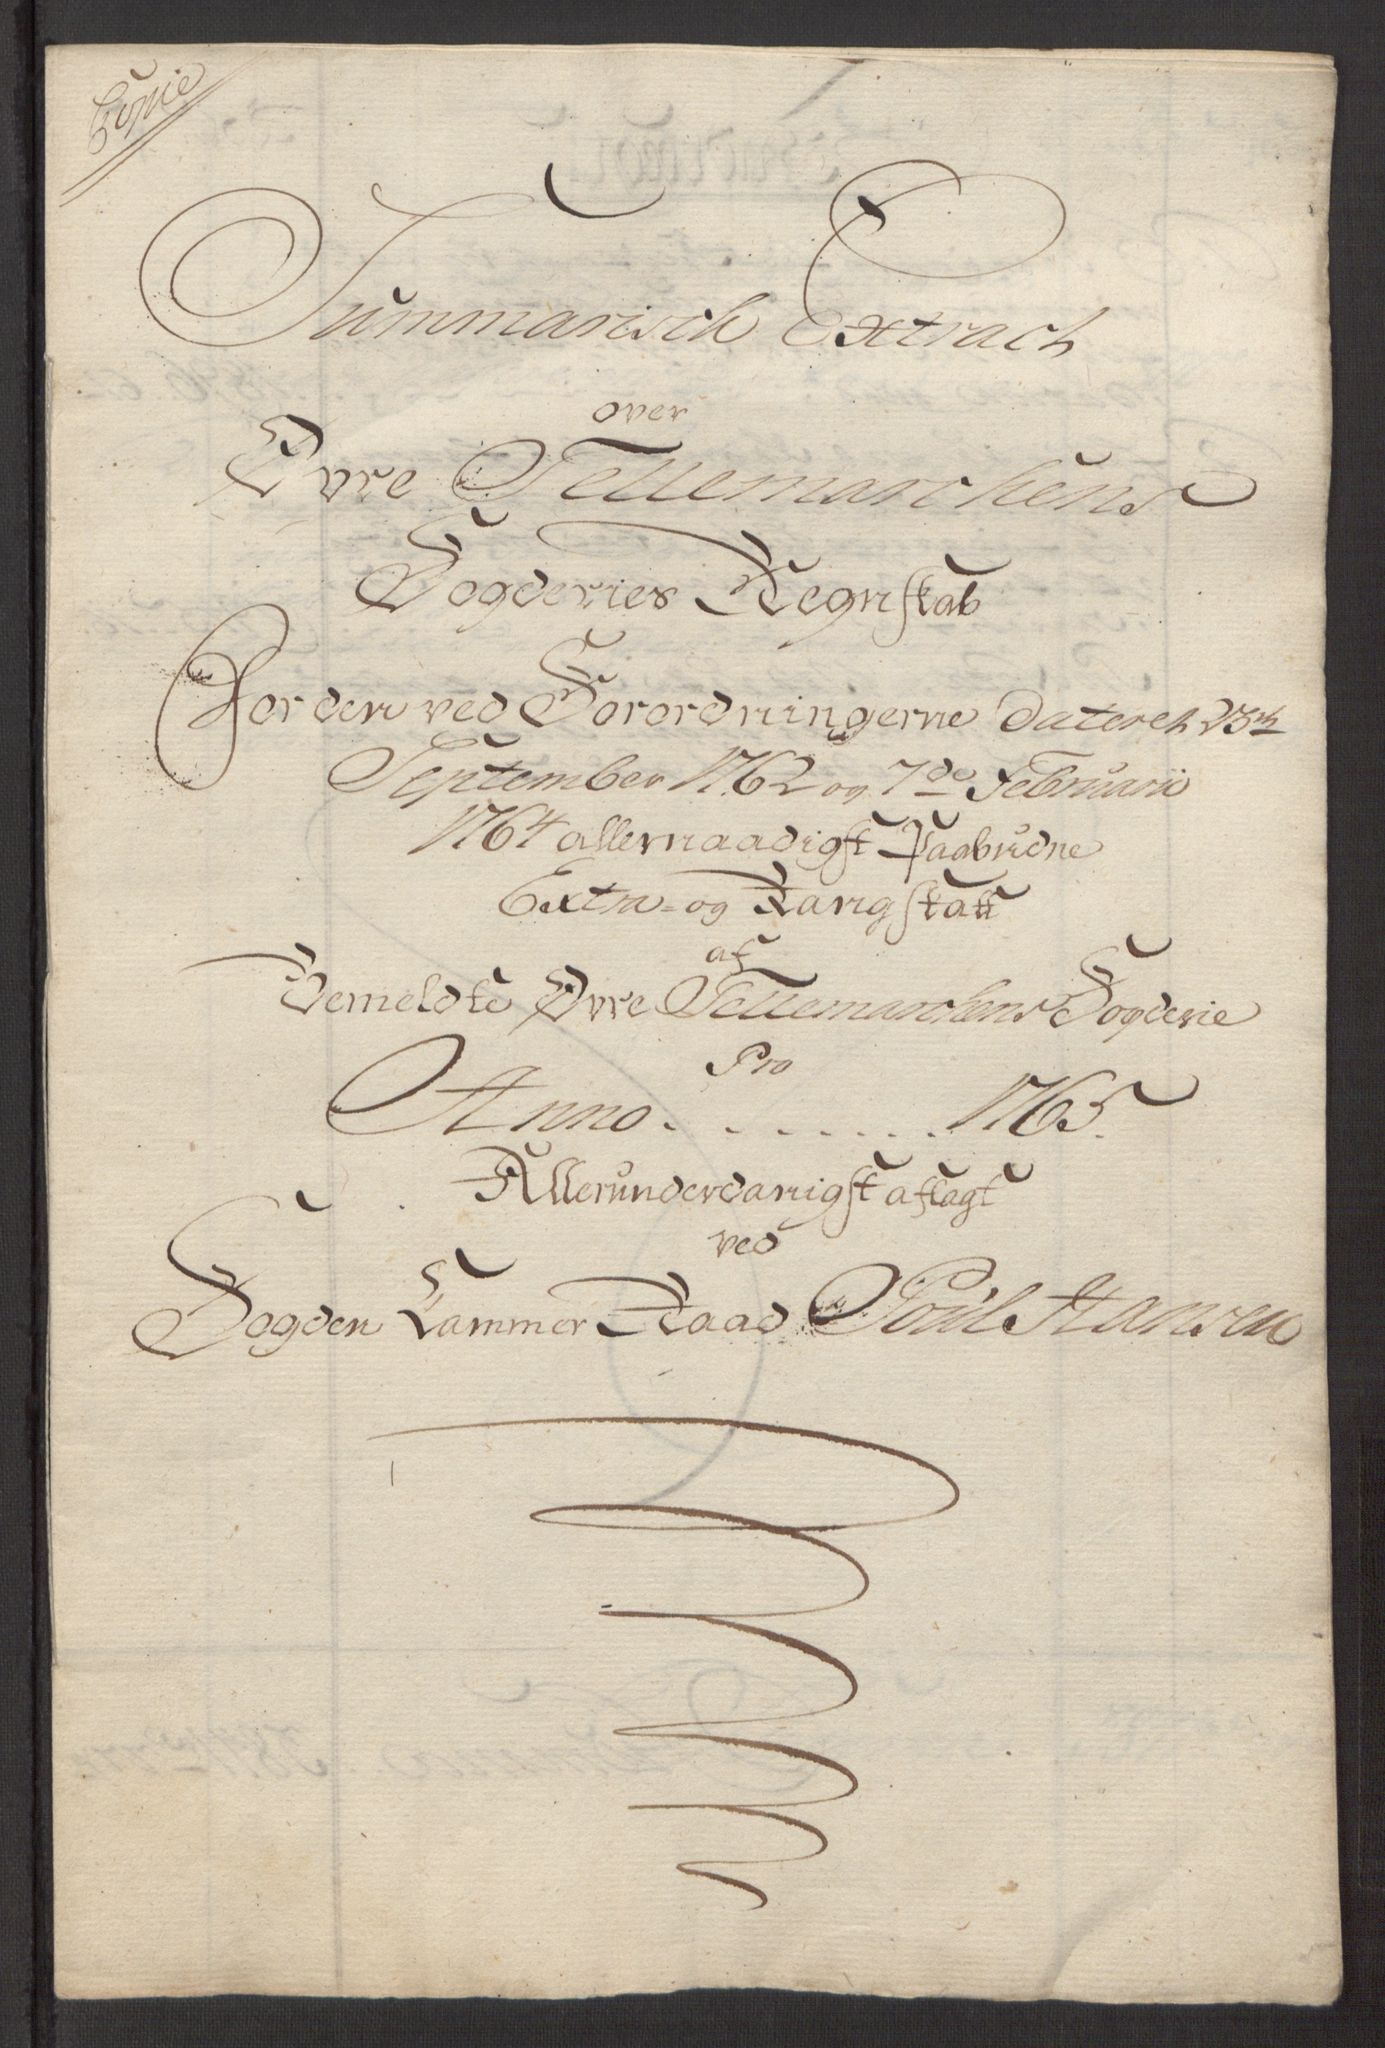 Copie
Summarisch Extract
over
Øvre Tellemarchens
Fogderies Regnskab
For den ved Forordningerne dateret 23de
September 1762 og 7de Februarii
1764 allernaadigst Paabudne
Extra- og Rangskatt
af
Bemeldte Øvre Tellemarchens Fogderie
Pro
Anno . . . . . . . . 1765.
Allerunderdanigst aflagt
ved
Fogden Cammer Raad Poül Hansen